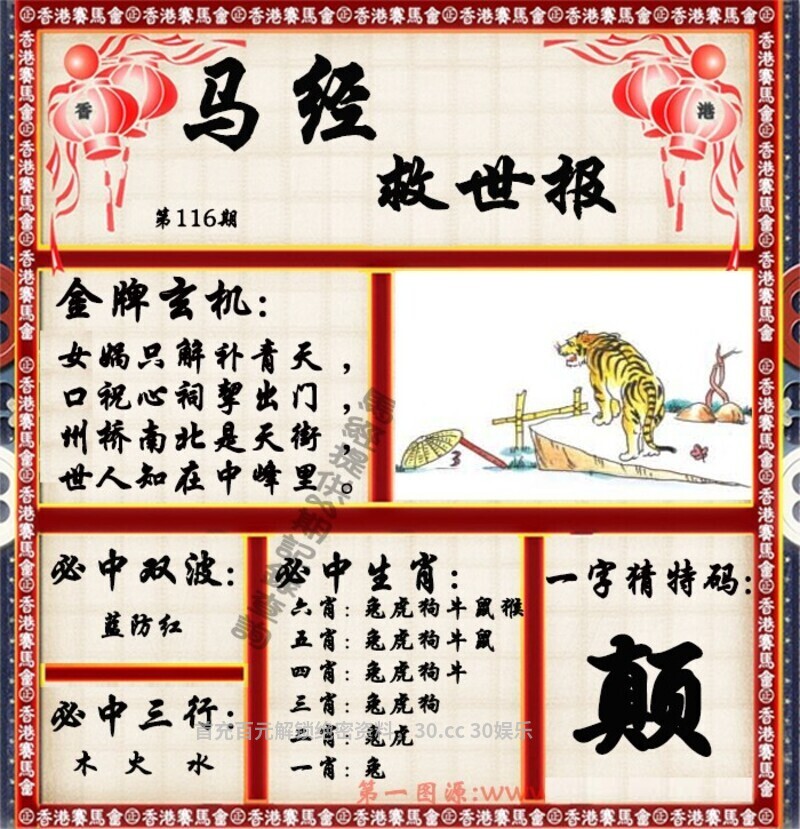 香港賽馬會
香
港
马经
救世报
第116期
金牌玄机:
女娲只解补青天，
口祝心祠挈出门，
州桥南北是天街，
世人知在中峰里。
必中双波:
蓝防红
必中三行:
木 火 水
必中生肖:
六肖: 兔虎狗牛鼠猴
五肖: 兔虎狗牛鼠
四肖: 兔虎狗牛
三肖: 兔虎狗
二肖: 兔虎
一肖: 兔
一字猜特码:
颠
首充百元解锁绝密资料 30.cc 30娱乐
第一图源:www